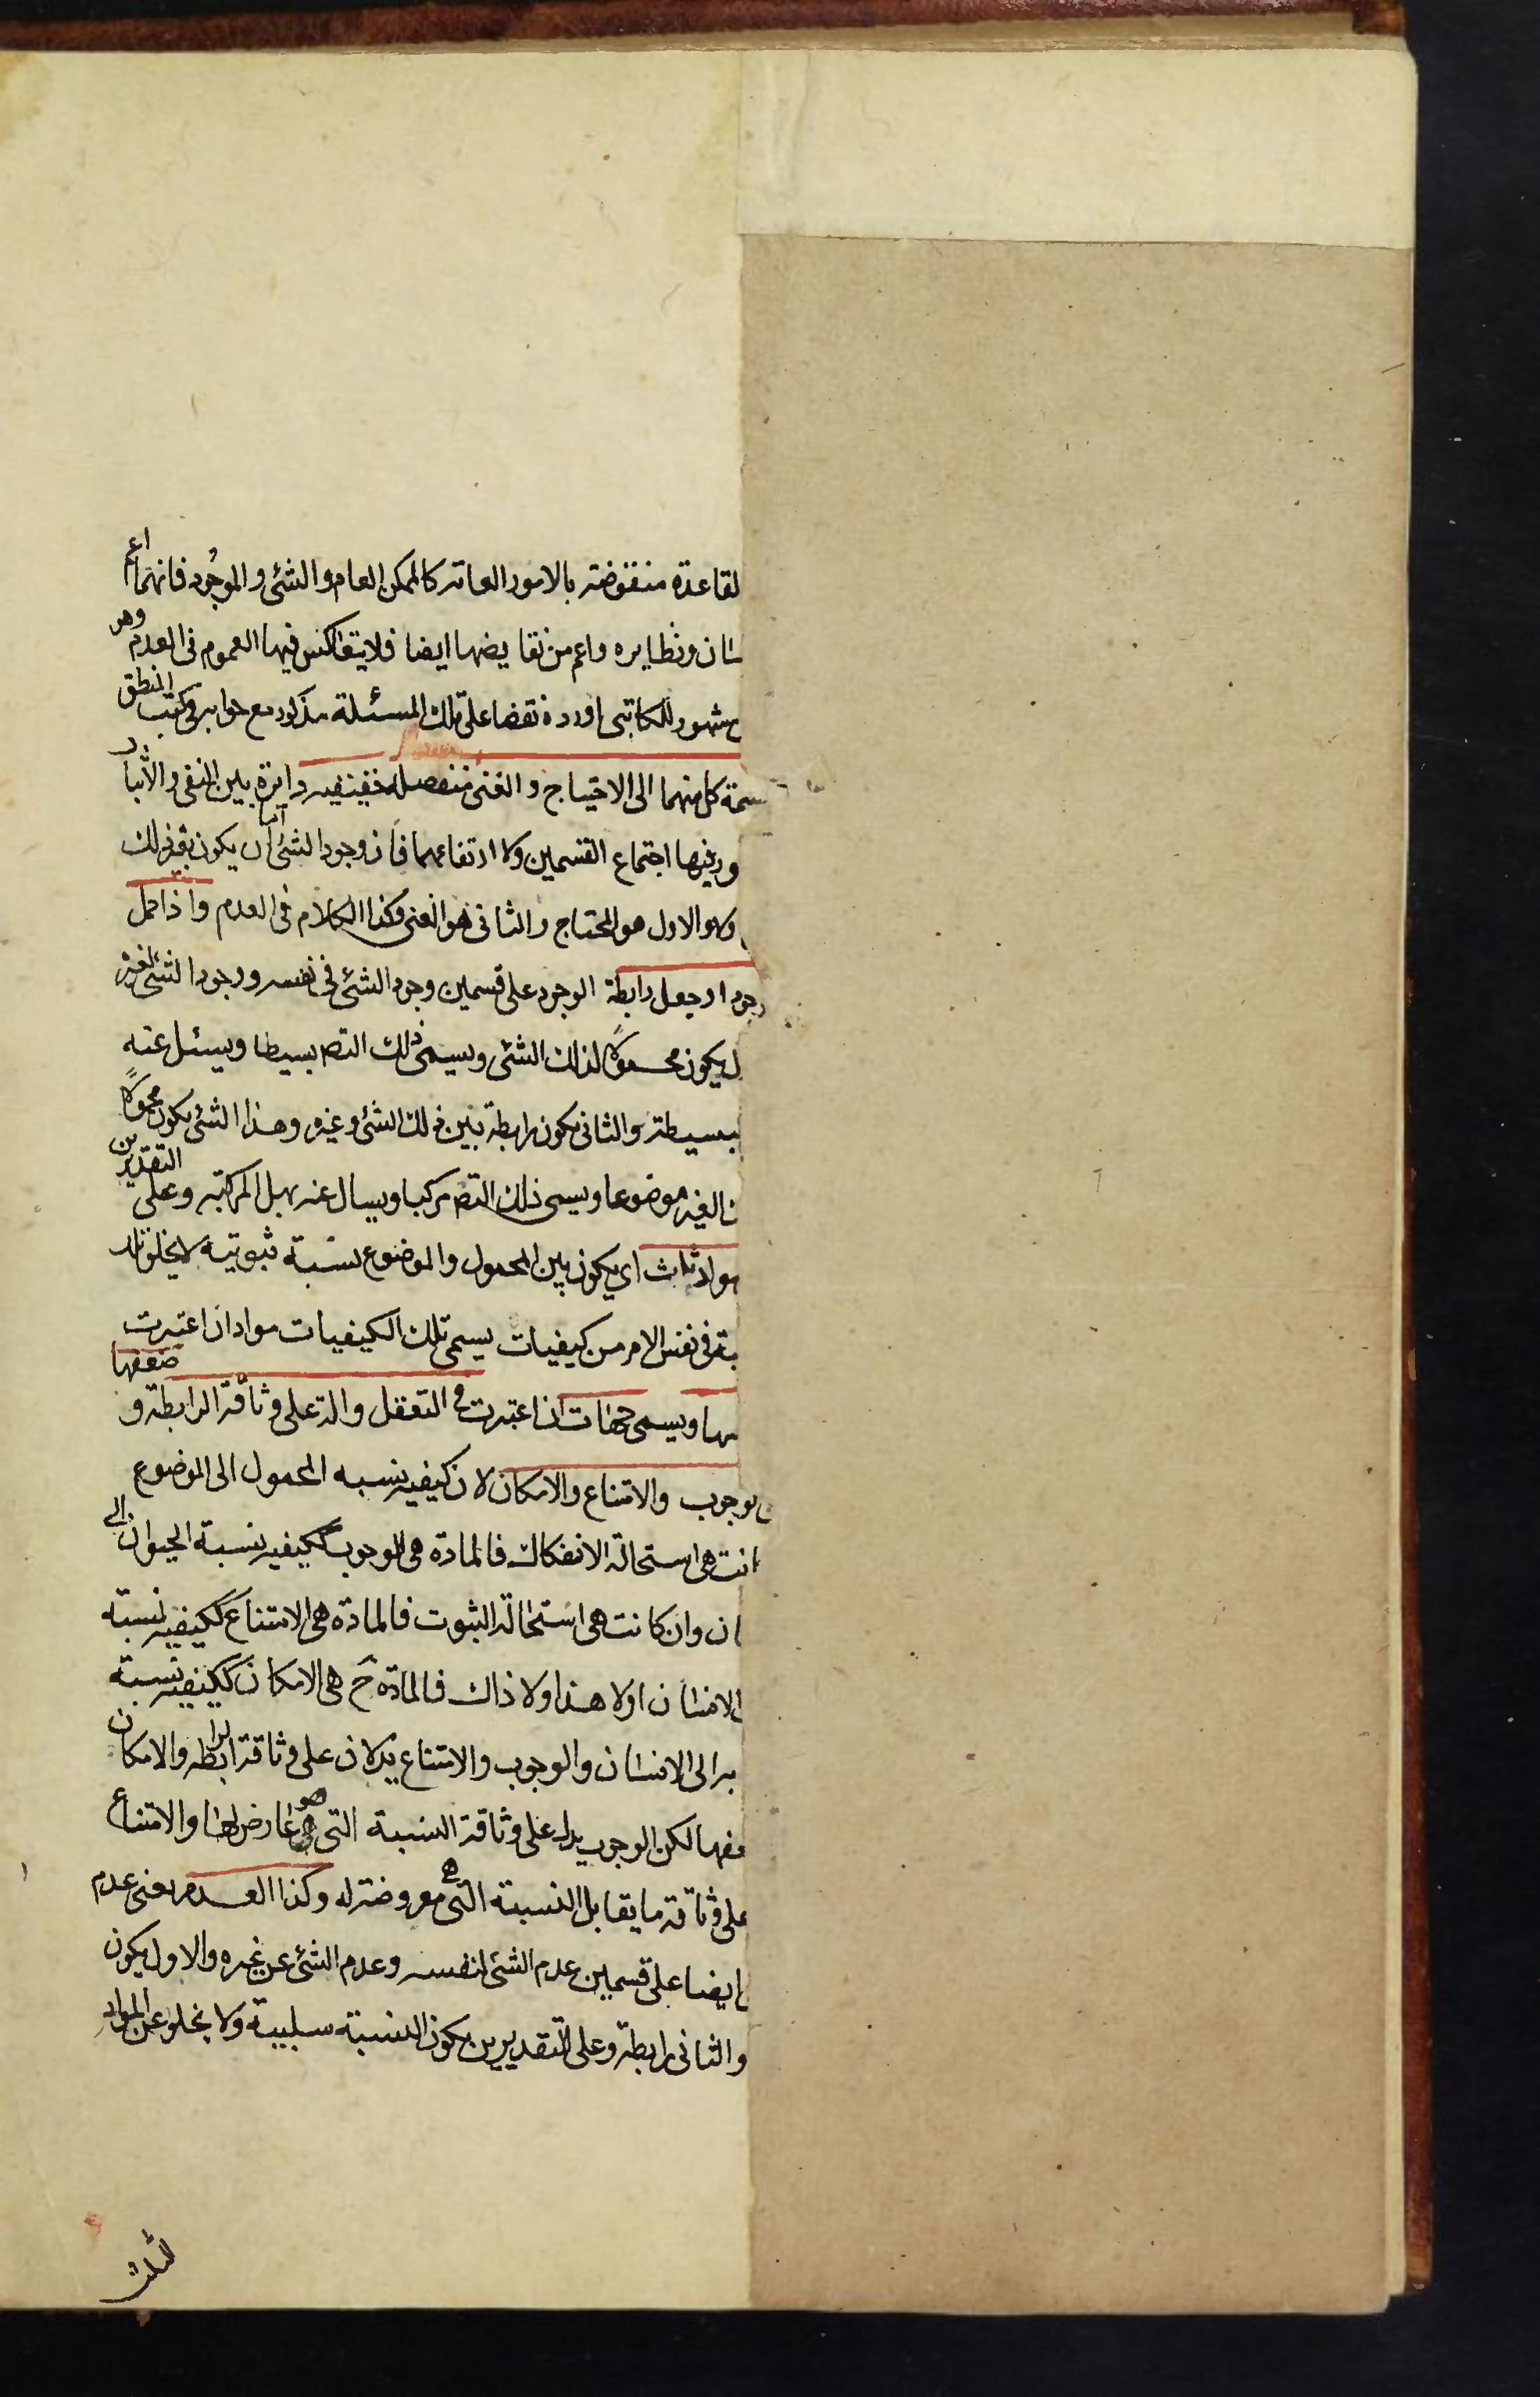 لقاعدة منقوضة بالامور العامة كالممكن العام والشئ والموجود فانهما اعم
سان ونظايره واعم من نقايضها ايضا فلا يتعاكس فيها العموم فى العدم وهو
مشهور للكاتبى اورده نقضا على تلك المسئلة مذكور مع جوابه فى كتب المنطق
سمة كل منهما الى الاحتياج والغنى منفصلة حقيقيه دايرة بين النفى والاثبات
اجتماع القسمين ولا ارتفاعهما فان وجود الشئ اما ان يكون بغير ذلك
وهو الاول هو المحتاج والثانى هو الغنى وكذا الكلام فى العدم واذا حمل
وجود او جعل رابطة الوجود على قسمين وجود الشئ فى نفسه ووجود الشئ لغيره
ل يكون محمولاً لذلك الشئ ويسمى ذلك التص بسيطا ويسئل عنه
لبسيطة والثانى يكون رابطة بين ذلك الشئ وغيره وهذا الشئ يكون محمولاً
الغير موضوعا ويسمى ذلك التص مركبا ويسال عنه بهل المركبه وعلى التقديرين
مواد ثلث اى يكون بين المحمول والموضوع نسبة ثبوتية لا يخلو تلك
فى نفس الامر من كيفيات يسمى تلك الكيفيات مواد ان اعتبرت
سها ويسمى جهات اذا اعتبرت فى التعقل دالة على وثاقة الرابطة و ضعفها
لوجوب والامتناع والامكان لان كيفية نسبه المحمول الى الموضوع
انت هى استحالة الانفكاك فالمادة هى الوجوب ككيفية نسبة الحيوان الى
ان وان كانت هى استحالة الثبوت فالمادة هى الامتناع ككيفية نسبة
الانسان اولا هذا ولا ذاك فالمادة ح هى الامكان ككيفية نسبة
به الى الانسان والوجوب والامتناع يدلان على وثاقة الرابطة والامكان
عفها لكن الوجوب يدل على وثاقة النسبة التى هو عارض لها والامتناع
على وثاقة ما يقابل النسبة التى هى معروضة له وكذا العدم يعنى عدم
ايضا على قسمين عدم الشئ لنفسه وعدم الشئ عن غيره والاول يكون
والثانى رابطة وعلى التقديرين يكون النسبة سلبية ولا يخلو عن المواد